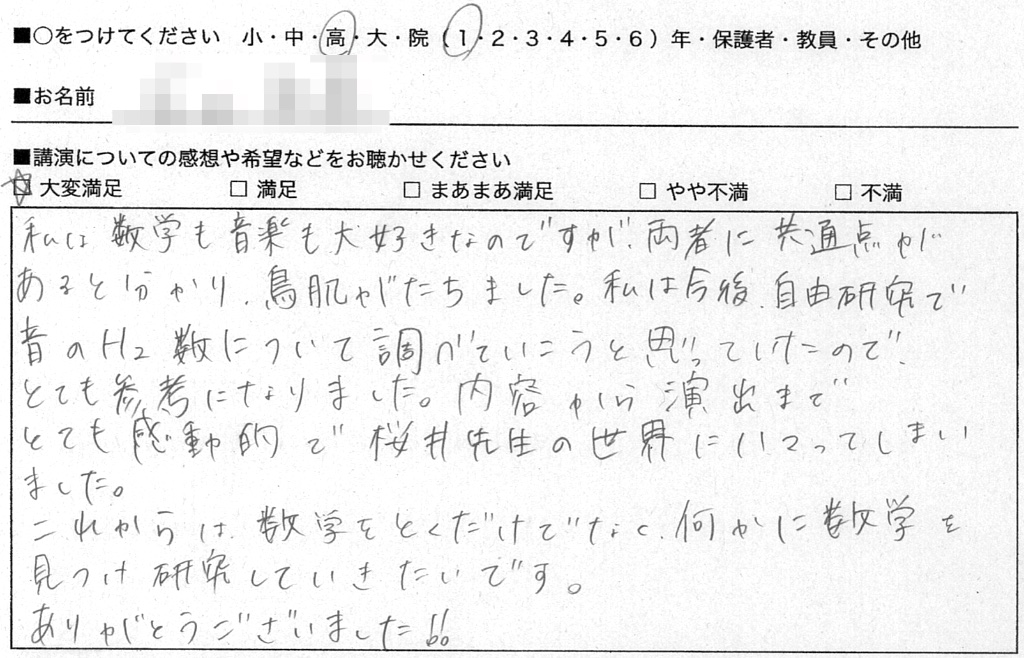 ■○をつけてください 小・中・高・大・院（1・2・3・4・5・6）年・保護者・教員・その他
■お名前
■講演についての感想や希望などをお聴かせください
□ 大変満足 □ 満足 □ まあまあ満足 □ やや不満 □ 不満
私は数学も音楽も大好きなのですが、両者に共通点が
あると分かり、鳥肌がたちました。私は今後、自由研究で
音のHz数について調べていこうと思っていたので、
とても参考になりました。内容から演出まで
とても感動的で桜井先生の世界にはまってしまい
ました。
これからは、数学をとくだけでなく、何かに数学を
見つけ研究していきたいです。
ありがとうございました!!